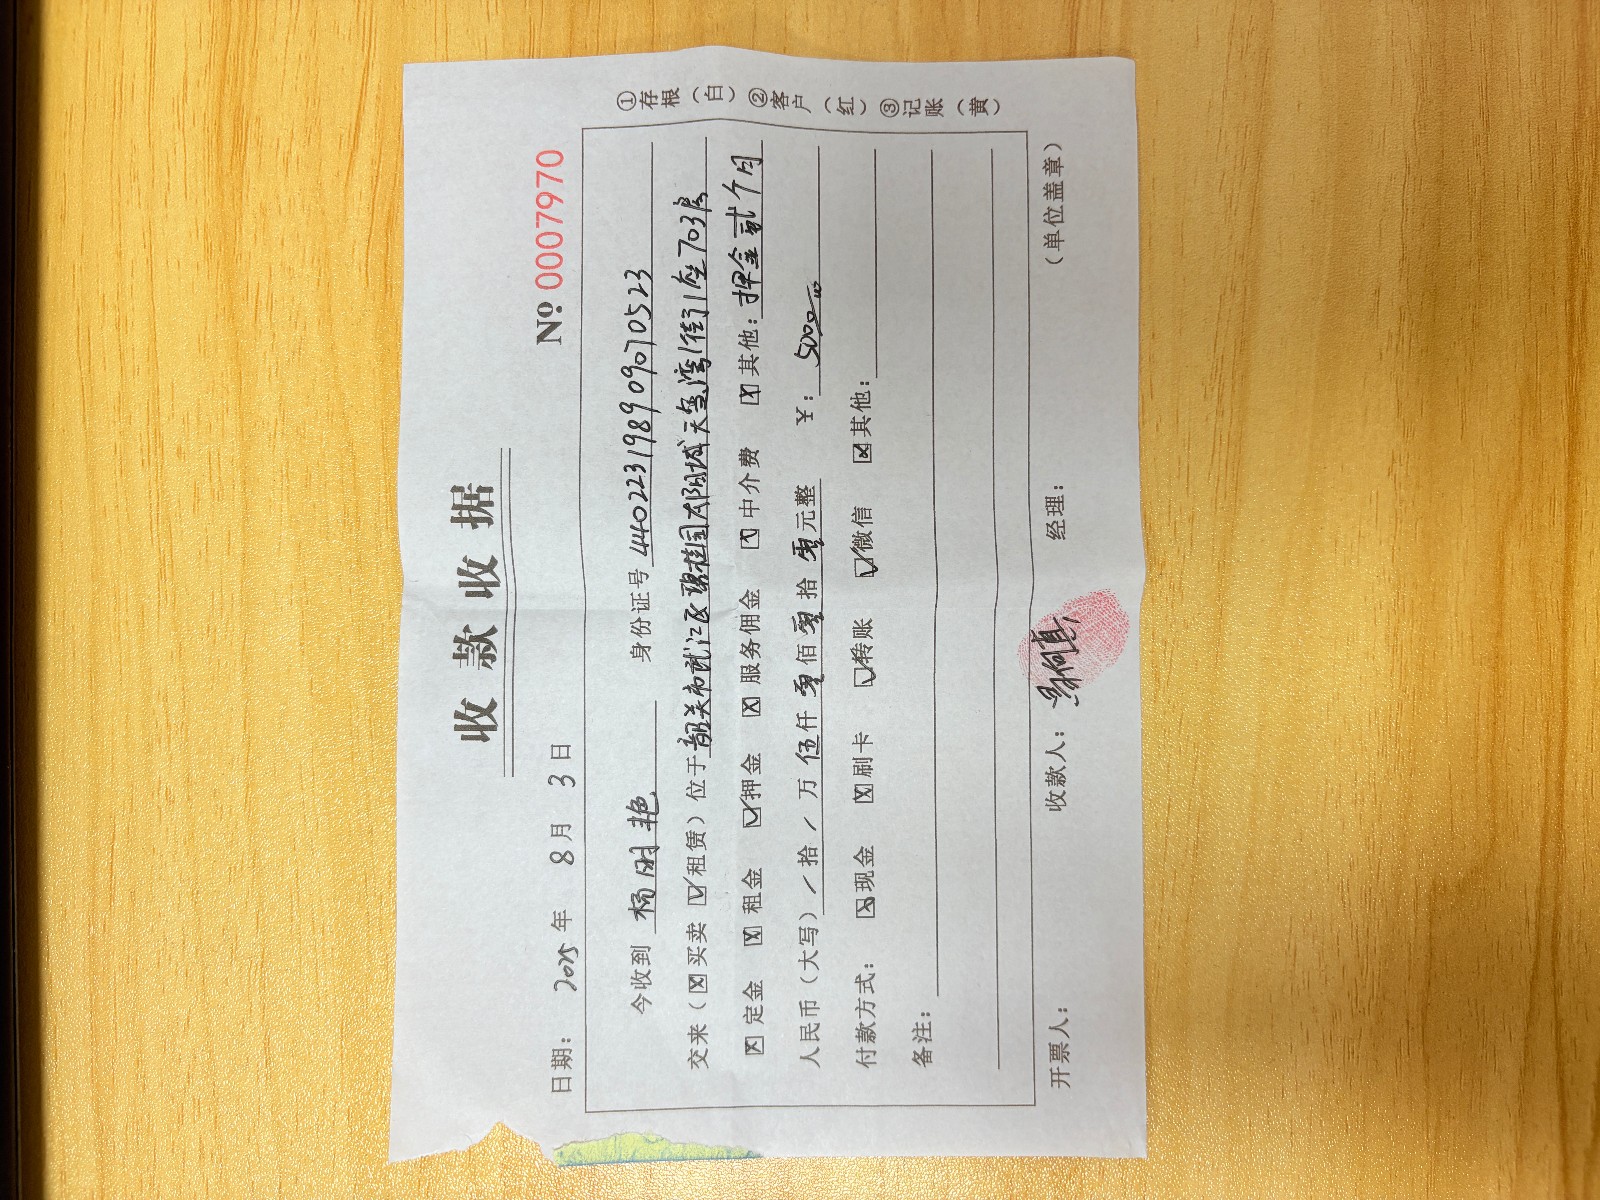 收款收据
№ 0007970
日期： 2025 年 8 月 3 日
①存根（白）②客户（红）③记账（黄）
今收到 杨明艳 身份证号 440223198909070523
交来（☒买卖 ☑租赁）位于 韶关市武江区碧桂园太阳城天玺湾1街1座703房
☒定金 ☒租金 ☑押金 ☒服务佣金 ☒中介费 ☒其他：押金贰个月
人民币（大写） / 拾 / 万 伍 仟 零 佰 零 拾 零 元整 ￥： 5000
付款方式： ☒现金 ☒刷卡 ☑转账 ☑微信 ☒其他：
备注：
开票人： 收款人： 经理： （单位盖章）